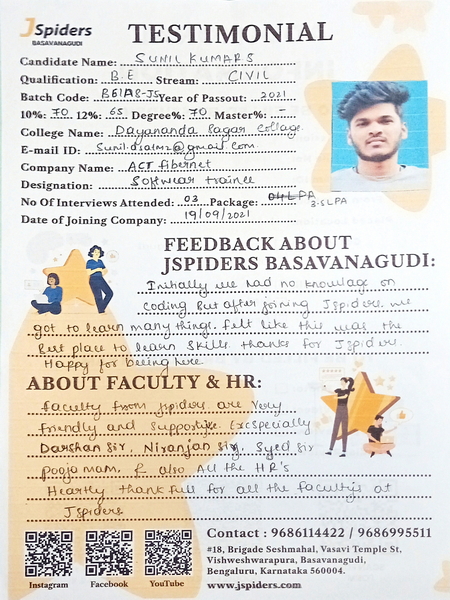 JSpiders
BASAVANAGUDI
TESTIMONIAL
Candidate Name: SUNIL KUMAR S
Qualification: B.E Stream: CIVIL
Batch Code: B61A8-JS Year of Passout: 2021
10%: 70 12%: 65 Degree%: 70 Master%: -
College Name: Dayananda Sagar College
E-mail ID:
Company Name: ACT fibernet
Designation: Softwear trainee
No Of Interviews Attended: 03 Package: 04 LPA 3.5LPA
Date of Joining Company: 19/09/2021
FEEDBACK ABOUT
JSPIDERS BASAVANAGUDI:
Initially we had no knowlage on
Coding But after joining Jspiders we
got to learn many things. felt like this was the
Best place to learn Skills. thanks for Jspiders.
Happy for beeing here
ABOUT FACULTY & HR:
faculty from jspiders are Very
friendly and Supportive. Excspecially
Darshan sir, Niranjan sir, Syed sir
pooja mam, & also All the HR's
Heartly thank full for all the facultys at
Jspiders
Instagram Facebook YouTube
Contact : 9686114422 / 9686995511
#18, Brigade Seshmahal, Vasavi Temple St,
Vishweshwarapura, Basavanagudi,
Bengaluru, Karnataka 560004.
www.jspiders.com